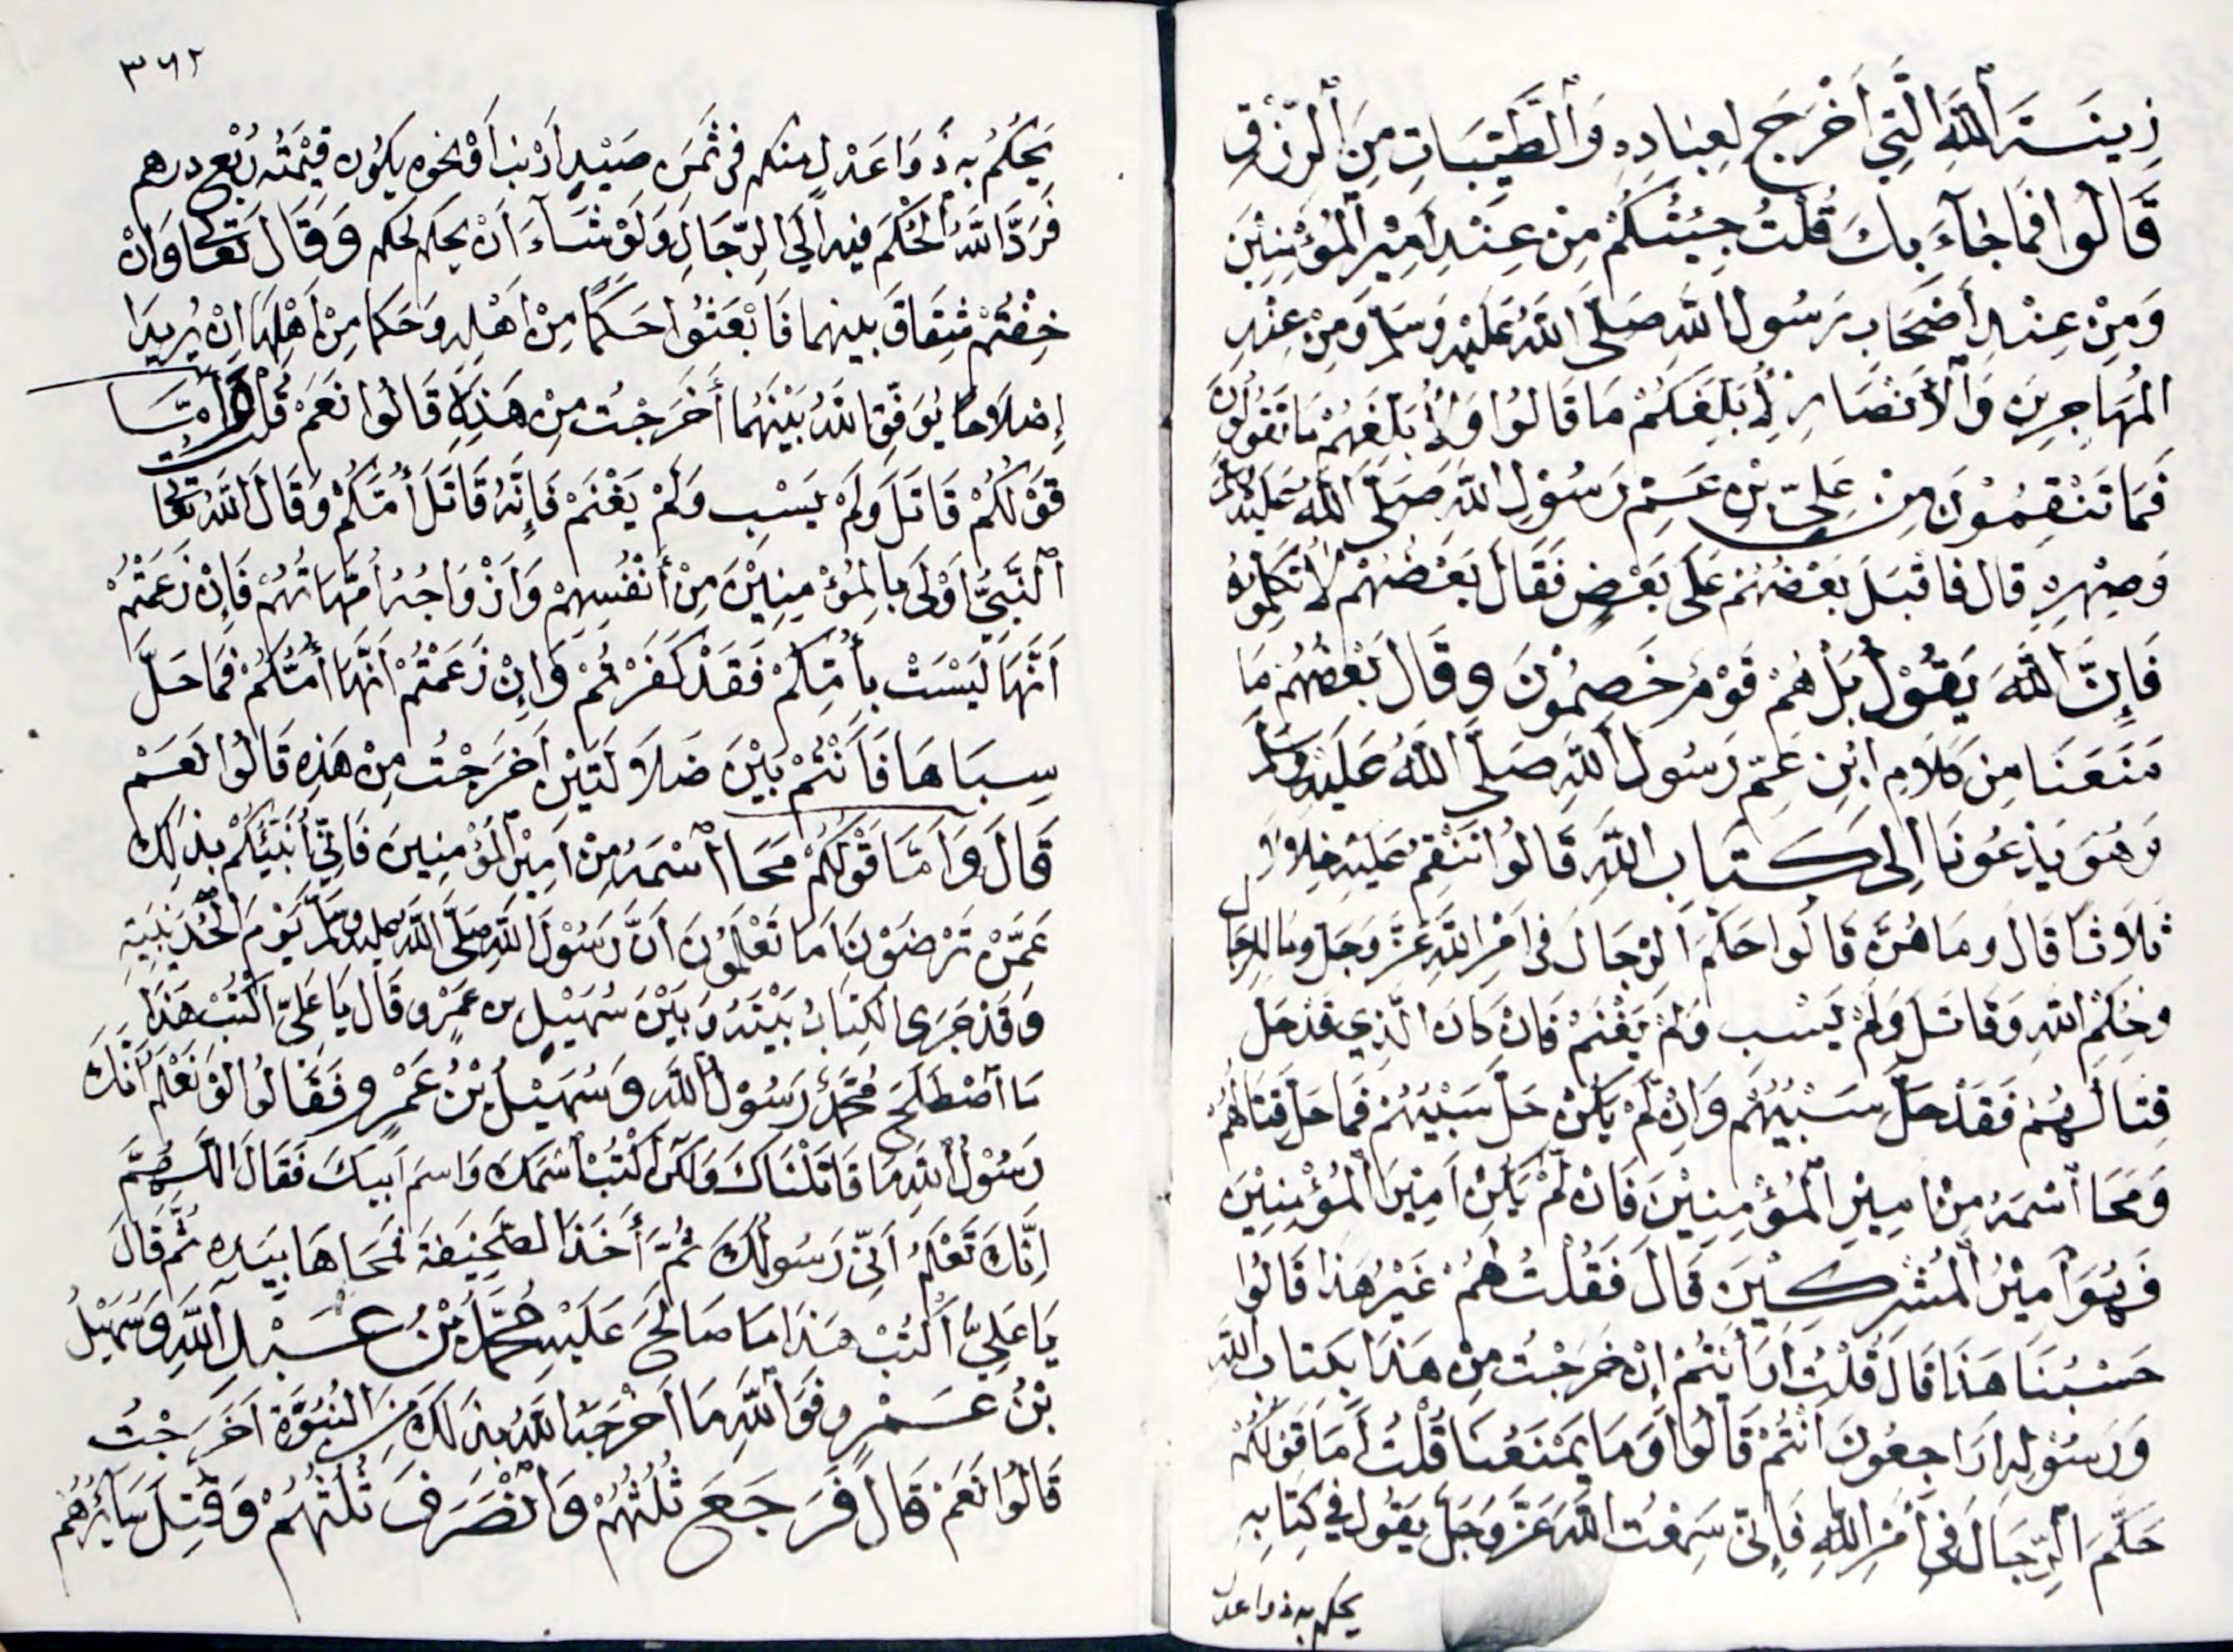 زِينَةَ ٱللَّهِ الَّتِي أَخْرَجَ لِعِبَادِهِ وَٱلطَّيِّبَاتِ مِنَ ٱلرِّزْقِ
قَالُوا فَمَا جَاءَ بِكَ قُلْتُ جِئْتُكُمْ مِنْ عِنْدِ أَمِيرِ ٱلْمُؤْمِنِينَ
وَمِنْ عِنْدِ أَصْحَابِ رَسُولِ اللَّهِ صَلَّى اللَّهُ عَلَيْهِ وَسَلَّمَ وَمِنْ عِنْدِ
المُهَاجِرِينَ وَٱلْأَنْصَارِ لِأُبَلِّغَكُمْ مَا قَالُوا وَلِأُبَلِّغَهُمْ مَا تَقُولُونَ
فَمَا تَنْقِمُونَ مِنْ عَلِيِّ بْنِ عَمِّ رَسُولِ اللَّهِ صَلَّى ٱللَّهُ عَلَيْهِ وَسَلَّمَ
وَصِهْرِهِ قَالَ فَاقْبَلَ بَعْضُهُمْ عَلَى بَعْضٍ فَقَالَ بَعْضُهُمْ لَا تُكَلِّمُوهُ
فَإِنَّ ٱللَّهَ يَقُولُ بَلْ هُمْ قَوْمٌ خَصِمُونَ وَقَالَ بَعْضُهُمْ مَا
مَنَعَنَا مِنْ كَلَامِ ابْنِ عَمِّ رَسُولِ ٱللَّهِ صَلَّى ٱللَّهُ عَلَيْهِ وَسَلَّمَ
وَهُوَ يَدْعُونَا إِلَى كِتَابِ اللَّهِ قَالُوا نَنْقِمُ عَلَيْهِ خِلَالًا
ثَلَاثًا قَالَ وَمَا هُنَّ قَالُوا حَكَّمَ الرِّجَالَ فِي أَمْرِ اللَّهِ عَزَّ وَجَلَّ وَمَا لِلرِّجَالِ
وَحُكْمِ اللَّهِ وَقَاتَلَ وَلَمْ يَسْبِ وَلَمْ يَغْنَمْ فَإِنْ كَانَ الَّذِي قَدْ حَلَّ
قِتَالُهُمْ فَقَدْ حَلَّ سَبْيُهُمْ وَإِنْ لَمْ يَكُنْ حَلَّ سَبْيُهُمْ فَمَا حَلَّ قِتَالُهُمْ
وَمَحَا ٱسْمَهُ مِنْ أَمِيرِ ٱلْمُؤْمِنِينَ فَإِنْ لَمْ يَكُنْ أَمِيرَ ٱلْمُؤْمِنِينَ
فَهُوَ أَمِيرُ ٱلْمُشْرِكِينَ قَالَ فَقُلْتُ لَهُمْ غَيْرُ هَذَا قَالُوا
حَسْبُنَا هَذَا قَالَ قُلْتُ أَرَأَيْتُمْ إِنْ خَرَجْتُ مِنْ هَذَا بِكِتَابِ اللَّهِ
وَرَسُولِهِ أَرَاجِعُونَ أَنْتُمْ قَالُوا وَمَا يَمْنَعُنَا قُلْتُ أَمَا قَوْلُكُمْ
حَكَّمَ ٱلرِّجَالَ فِي أَمْرِ اللَّهِ فَإِنِّي سَمِعْتُ اللَّهَ عَزَّ وَجَلَّ يَقُولُ فِي كِتَابِهِ
يحكم به ذوا عدل
٣٦٢
يَحْكُمُ بِهِ ذَوَا عَدْلٍ مِنْكُمْ فِي ثَمَنِ صَيْدٍ أَرْنَبٍ أَوْ نَحْوِهِ يَكُونُ قِيمَتُهُ رُبْعَ دِرْهَمٍ
فَرَدَّ اللَّهُ ٱلْحُكْمَ فِيهِ إِلَى الرِّجَالِ وَلَوْ شَاءَ أَنْ يَحْكُمَ لَحَكَمَ وَقَالَ تَعَالَى وَإِنْ
خِفْتُمْ شِقَاقَ بَيْنِهِمَا فَابْعَثُوا حَكَمًا مِنْ أَهْلِهِ وَحَكَمًا مِنْ أَهْلِهَا إِنْ يُرِيدَا
إِصْلَاحًا يُوَفِّقِ اللَّهُ بَيْنَهُمَا أَخَرَجْتُ مِنْ هَذِهِ قَالُوا نَعَمْ قُلْتُ وَأَمَّا
قَوْلُكُمْ قَاتَلَ وَلَمْ يَسْبِ وَلَمْ يَغْنَمْ فَإِنَّهُ قَاتَلَ أُمَّكُمْ وَقَالَ اللَّهُ تَعَالَى
ٱلنَّبِيُّ أَوْلَى بِالْمُؤْمِنِينَ مِنْ أَنْفُسِهِمْ وَأَزْوَاجُهُ أُمَّهَاتُهُمْ فَإِنْ زَعَمْتُمْ
أَنَّهَا لَيْسَتْ بِأُمِّكُمْ فَقَدْ كَفَرْتُمْ وَإِنْ زَعَمْتُمْ أَنَّهَا أُمُّكُمْ فَمَا حَلَّ
سِبَاهَا فَأَنْتُمْ بَيْنَ ضَلَالَتَيْنِ أَخَرَجْتُ مِنْ هَذِهِ قَالُوا نَعَمْ
قَالَ وَأَمَّا قَوْلُكُمْ مَحَا ٱسْمَهُ مِنْ أَمِيرِ ٱلْمُؤْمِنِينَ فَإِنِّي أُنَبِّئُكُمْ بِذَلِكَ
عَمَّنْ تَرْضَوْنَ أَمَا تَعْلَمُونَ أَنَّ رَسُولَ اللَّهِ صَلَّى اللَّهُ عَلَيْهِ وَسَلَّمَ يَوْمَ الْحُدَيْبِيَةِ
وَقَدْ جَرَى الكِتَابُ بَيْنَهُ وَبَيْنَ سُهَيْلِ بْنِ عَمْرٍو قَالَ يَا عَلِيُّ اكْتُبْ هَذَا
مَا ٱصْطَلَحَ مُحَمَّدٌ رَسُولُ ٱللَّهِ وَسُهَيْلُ بْنُ عَمْرٍو فَقَالُوا لَوْ نَعْلَمُ أَنَّكَ
رَسُولُ اللَّهِ مَا قَاتَلْنَاكَ وَلَكِنِ اكْتُبْ ٱسْمَكَ وَاسْمَ أَبِيكَ فَقَالَ اللَّهُمَّ
إِنَّكَ تَعْلَمُ أَنِّي رَسُولُكَ ثُمَّ أَخَذَ الصَّحِيفَةَ فَمَحَاهَا بِيَدِهِ ثُمَّ قَالَ
يَا عَلِيُّ ٱكْتُبْ هَذَا مَا صَالَحَ عَلَيْهِ مُحَمَّدُ بْنُ عَبْدِ ٱللَّهِ وَسُهَيْلُ
بْنُ عَمْرٍو فَوَٱللَّهِ مَا أَخْرَجَهُ اللَّهُ بِذَلِكَ مِنَ النُّبُوَّةِ أَخَرَجْتُ
قَالُوا نَعَمْ قَالَ فَرَجَعَ ثُلُثُهُمْ وَٱنْصَرَفَ ثُلُثُهُمْ وَقُتِلَ سَائِرُهُمْ